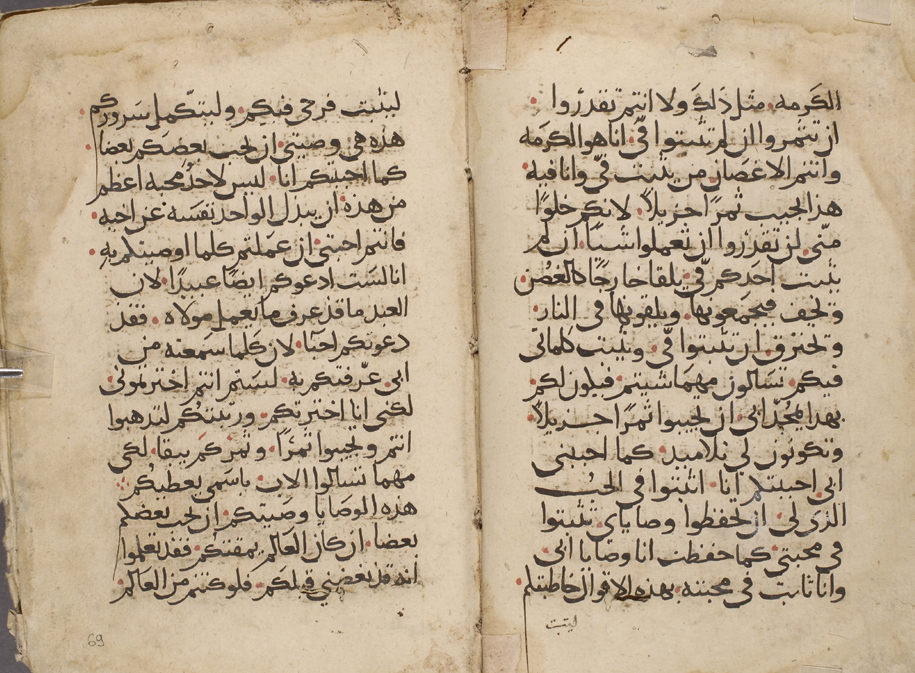 الكَرمه مثل ذَلكَ ولا انتم تقدروا
ان تثمروا ان لم تثبتوا فيّ انا هو الكرمَه
وانتم الاغصَان من يثبت فيّ وانا فيه
هذا يجيب ثمرًا جزيلاً لانكم خلوًا
منّي لن تقدرُوا ان تعملوا شيئًا ان لم
يثبت احدكم فيّ يلقا خارجًا كالغصُن
ويجف فيجمَعونها ويلقونها في النار
وتحترق ان تثبتوا فيّ ويثبت كلماتي
فيكم تسَالون مهمَا شيتم فيكون لكم
بهدا يمجّد ابي ان تجيبوا ثمرًا جزيلاً
وتكونون لي تلاميد كما احبني
ابي احببتكم انا اثبتوا في الحُب
الذي لي ان تحفظوا وصَاياي تثبتوا
في محبتي كما حفظت انا وصَايا ابي
وانا ثابت في محبته بهذه الاقوال خاطبتكم
ليثبت
ليثبت فرحي فيكم وليتكّمل سَروركم
هذه هي وصيتي ان يحب بعضكم بعضا
كما احببتكم انا ليس لاحد محبه اعظم
من هذه ان يبذل الواحد نفسَه عن احبه
فانتم احبتي ان عمَلتم كلما اوصيتكم به
انا لسَت ادعوكم ايضًا عبيدًا لان
العبد ما قد عرف ما يعمل مولاه فقد
دعوتكم احبَا لان كلما سَمعته من
ابي عرّفتكم به ليسَتم انتم اخترتموني
لكني انا اخترتكم ورتبتكم لتدهبوا
انتم وتجيبوا ثمرًا وثمركم يبقا لكي
مهما تسالوا الاب باسمي يعطيكم
هذه الوصَايا وصَيتكم ان يحب بعضكم
بعضا ان كان العَالم يمقتكم فقد تعلموا
انه قد بغضني قبلكم فلو كنتم من العَالم
69